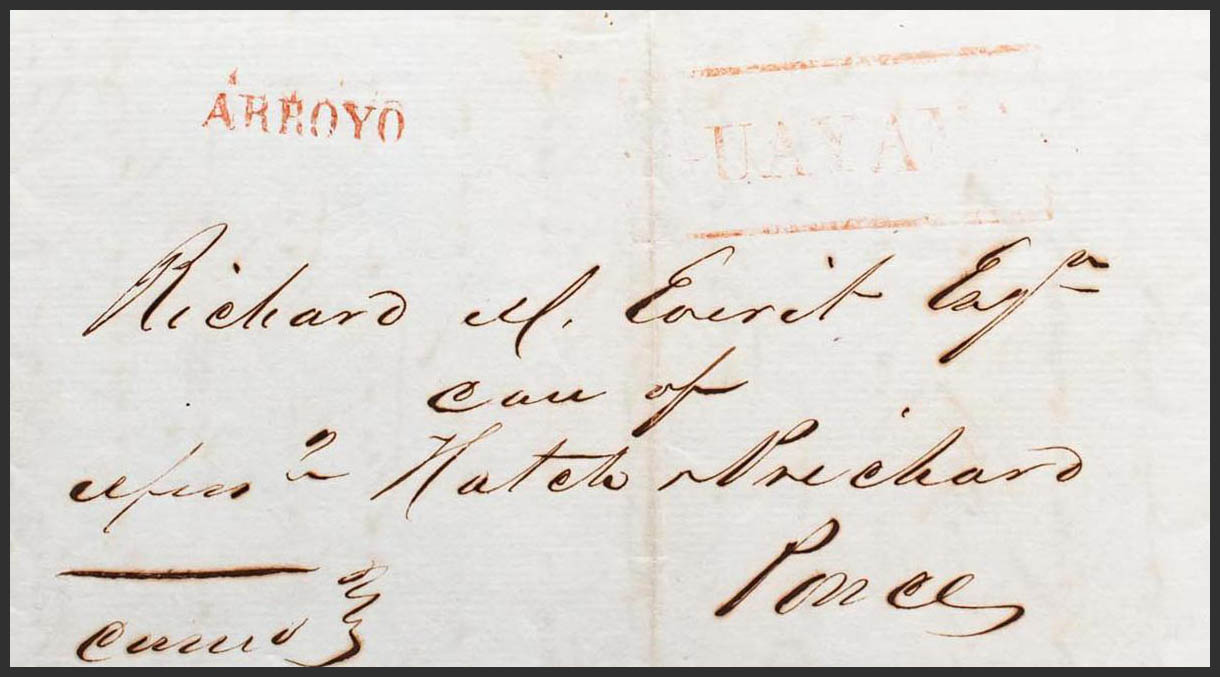 ARROYO
GUAYAM
Richard M. Everit Esqr
care of
Messrs Hatch & Prichard
Ponce
correo